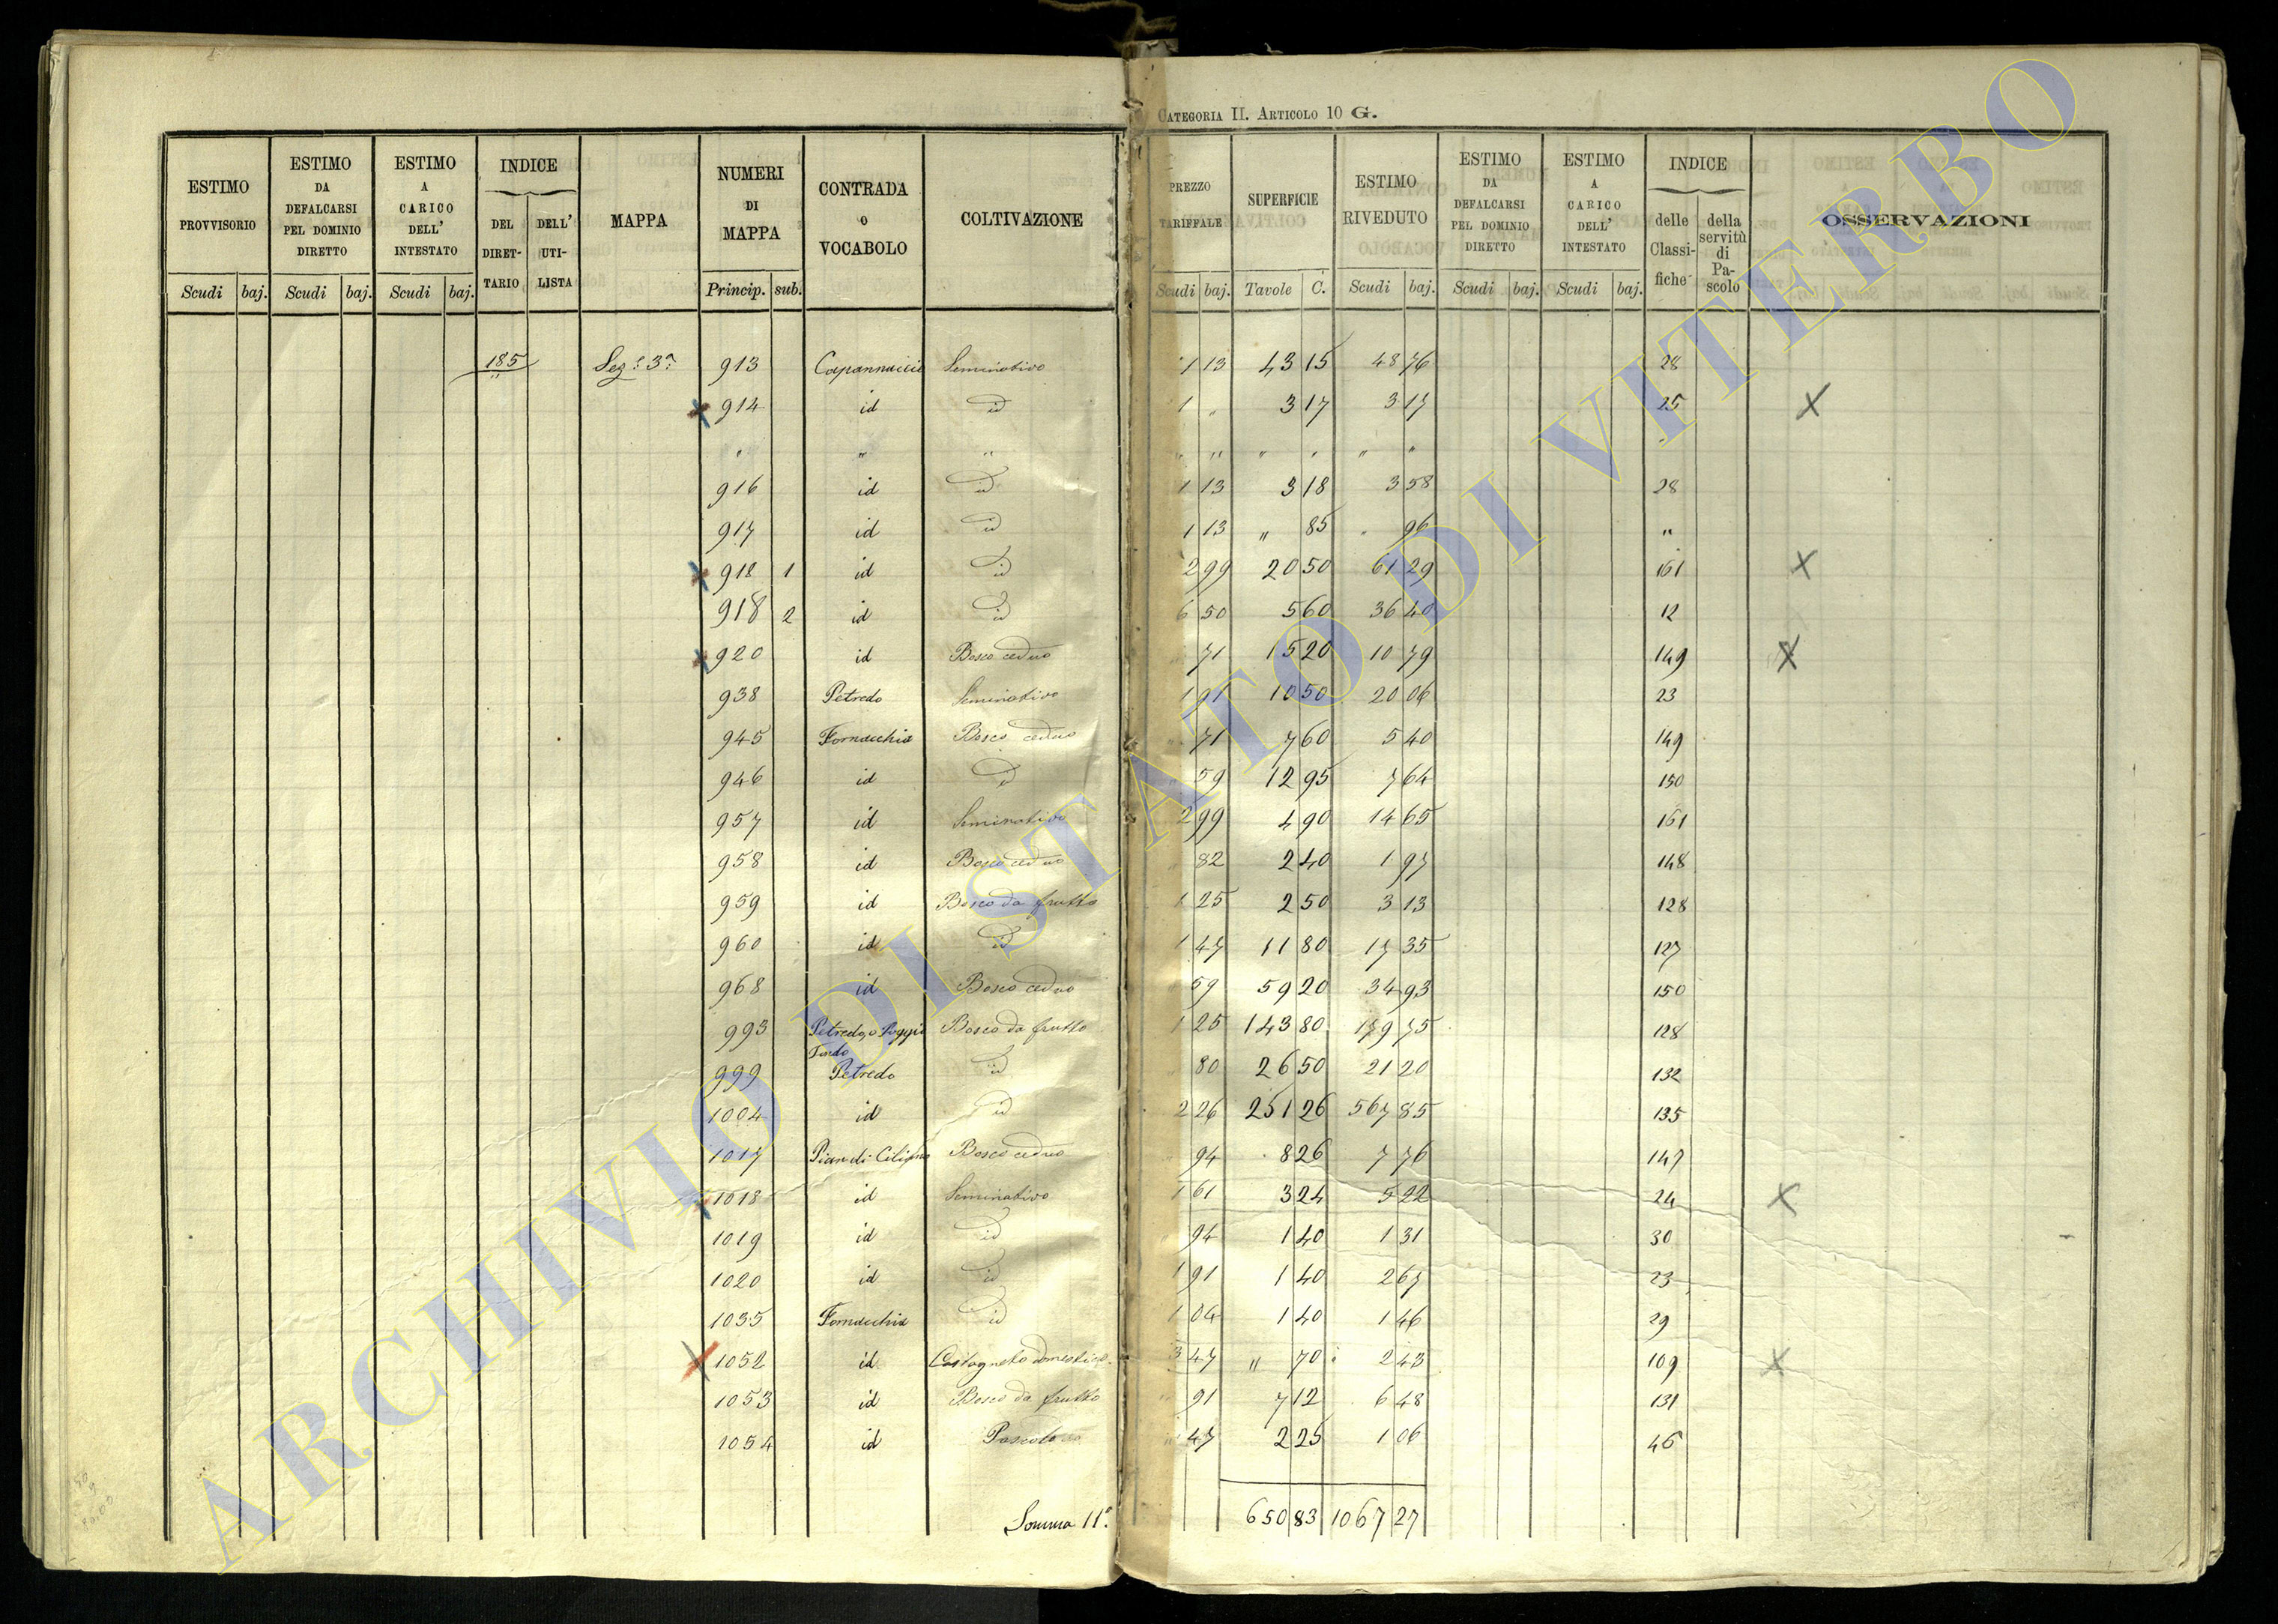 CATEGORIA II. ARTICOLO 10 G.
ESTIMO PROVVISORIO | ESTIMO DA DEFALCARSI PEL DOMINIO DIRETTO | ESTIMO A CARICO DELL' INTESTATO | INDICE DEL DIRETTARIO | DELL' UTILISTA | MAPPA | NUMERI DI MAPPA | CONTRADA o VOCABOLO | COLTIVAZIONE | PREZZO TARIFFALE | SUPERFICIE | ESTIMO RIVEDUTO | ESTIMO DA DEFALCARSI PEL DOMINIO DIRETTO | ESTIMO A CARICO DELL' INTESTATO | INDICE delle Classifiche | della servitù di Pascolo | OSSERVAZIONI
Scudi | baj. | Scudi | baj. | Scudi | baj. | Princip. | sub. | Scudi | baj. | Tavole | C. | Scudi | baj. | Scudi | baj. | Scudi | baj.
185 | Sez.e 3a | 913 | Capannaccie | Seminativo | 1 13 | 43 15 | 48 76 | 28
X 914 | id | id | 1 " | 3 17 | 3 17 | 25 | X
" | " | " | " " | " " | " "
916 | id | id | 1 13 | 3 18 | 3 58 | 28
917 | id | id | 1 13 | " 85 | " 96 | "
X 918 | 1 | id | id | 2 99 | 20 50 | 61 29 | 161 | X
918 | 2 | id | id | 6 50 | 5 60 | 36 40 | 12
X 920 | id | Bosco ceduo | " 71 | 15 20 | 10 79 | 149 | X
938 | Petredo | Seminativo | 1 91 | 10 50 | 20 06 | 23
945 | Fornacchia | Bosco ceduo | " 71 | 7 60 | 5 40 | 149
946 | id | id | " 59 | 12 95 | 7 64 | 150
957 | id | Seminativo | 2 99 | 4 90 | 14 65 | 161
958 | id | Bosco ceduo | " 82 | 2 40 | 1 97 | 148
959 | id | Bosco da frutto | 1 25 | 2 50 | 3 13 | 128
960 | id | id | 1 47 | 11 80 | 17 35 | 127
968 | id | Bosco ceduo | " 59 | 59 20 | 34 93 | 150
993 | Petredo, o Poggio Tondo | Bosco da frutto | 1 25 | 143 80 | 179 75 | 128
999 | Petredo | id | " 80 | 26 50 | 21 20 | 132
1004 | id | id | 2 26 | 251 26 | 567 85 | 135
1017 | Pian di Ciliano | Bosco ceduo | " 94 | 8 26 | 7 76 | 147
X 1018 | id | Seminativo | 1 61 | 3 24 | 5 22 | 24 | X
1019 | id | id | " 94 | 1 40 | 1 31 | 30
1020 | id | id | 1 91 | 1 40 | 2 67 | 23
1035 | Fornacchia | id | 1 04 | 1 40 | 1 46 | 29
X 1052 | id | Castagneto domestico | 3 47 | " 70 | 2 43 | 109 | X
1053 | id | Bosco da frutto | " 91 | 7 12 | 6 48 | 131
1054 | id | Pascolo | " 47 | 2 25 | 1 06 | 46
Somma 11a | 650 83 | 1067 27
ARCHIVIO DI STATO DI VITERBO